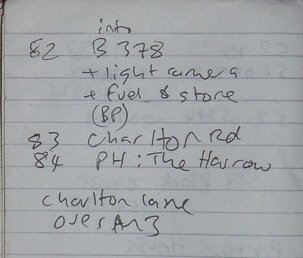 into
82 B 378
+ light camera
+ fuel & store
(BP)
83 Charlton Rd
84 PH: The Harrow
Charlton lane
over M3